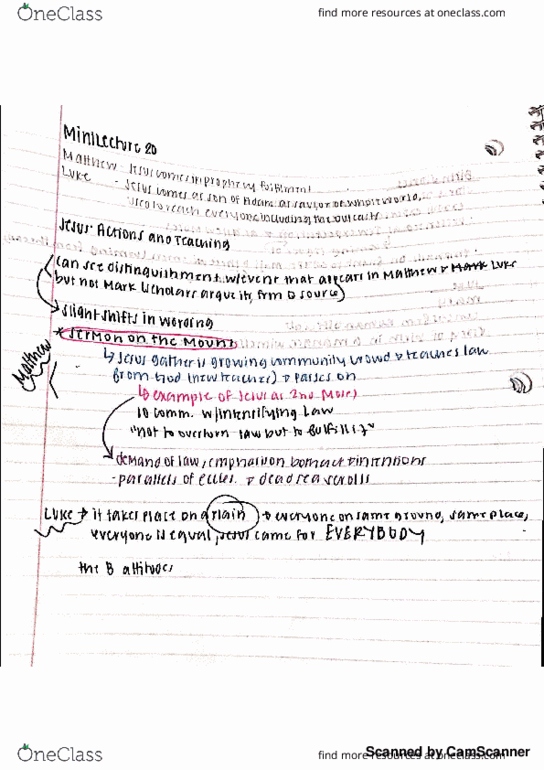 OneClass
find more resources at oneclass.com
MiniLecture 20
Matthew - Jesus comes in prophecy fulfillment
Luke - Jesus comes as son of Adam as savior of whole world,
used to reach everyone including the outcasts
Jesus' Actions and Teaching
(can see distinguishment w/event that appears in Matthew & Mark Luke
but not Mark (scholars argue its from Q source)
→ slight shifts in wording
* Sermon on the Mount
Matthew
↳ Jesus gathers growing community crowd & teaches law
from God (new teacher) & passes on
↳ example of Jesus as 2nd Moses
10 comm. w/intensifying Law
"not to overturn law but to fulfill it"
demand of law, emphasis on both act & intentions
- parallels of eccles. & dead sea scrolls
Luke → it takes place on a plain → everyone on same ground, same place,
everyone is equal, Jesus came for EVERYBODY
the B attitudes
Scanned by CamScanner
OneClass
find more resources at oneclass.com